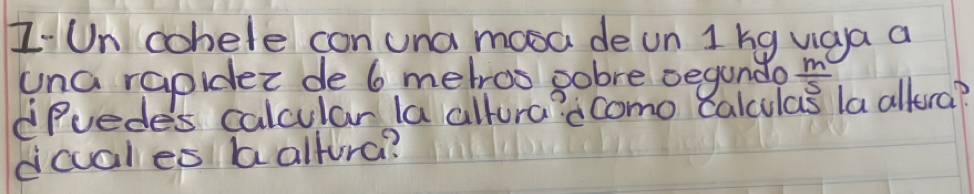 1.- Un cohete con una masa de un 1 kg viaja a
una rapidez de 6 metros sobre segundo m/s
¿Puedes calcular la altura? ¿como calculas la altura?
¿cual es la altura?